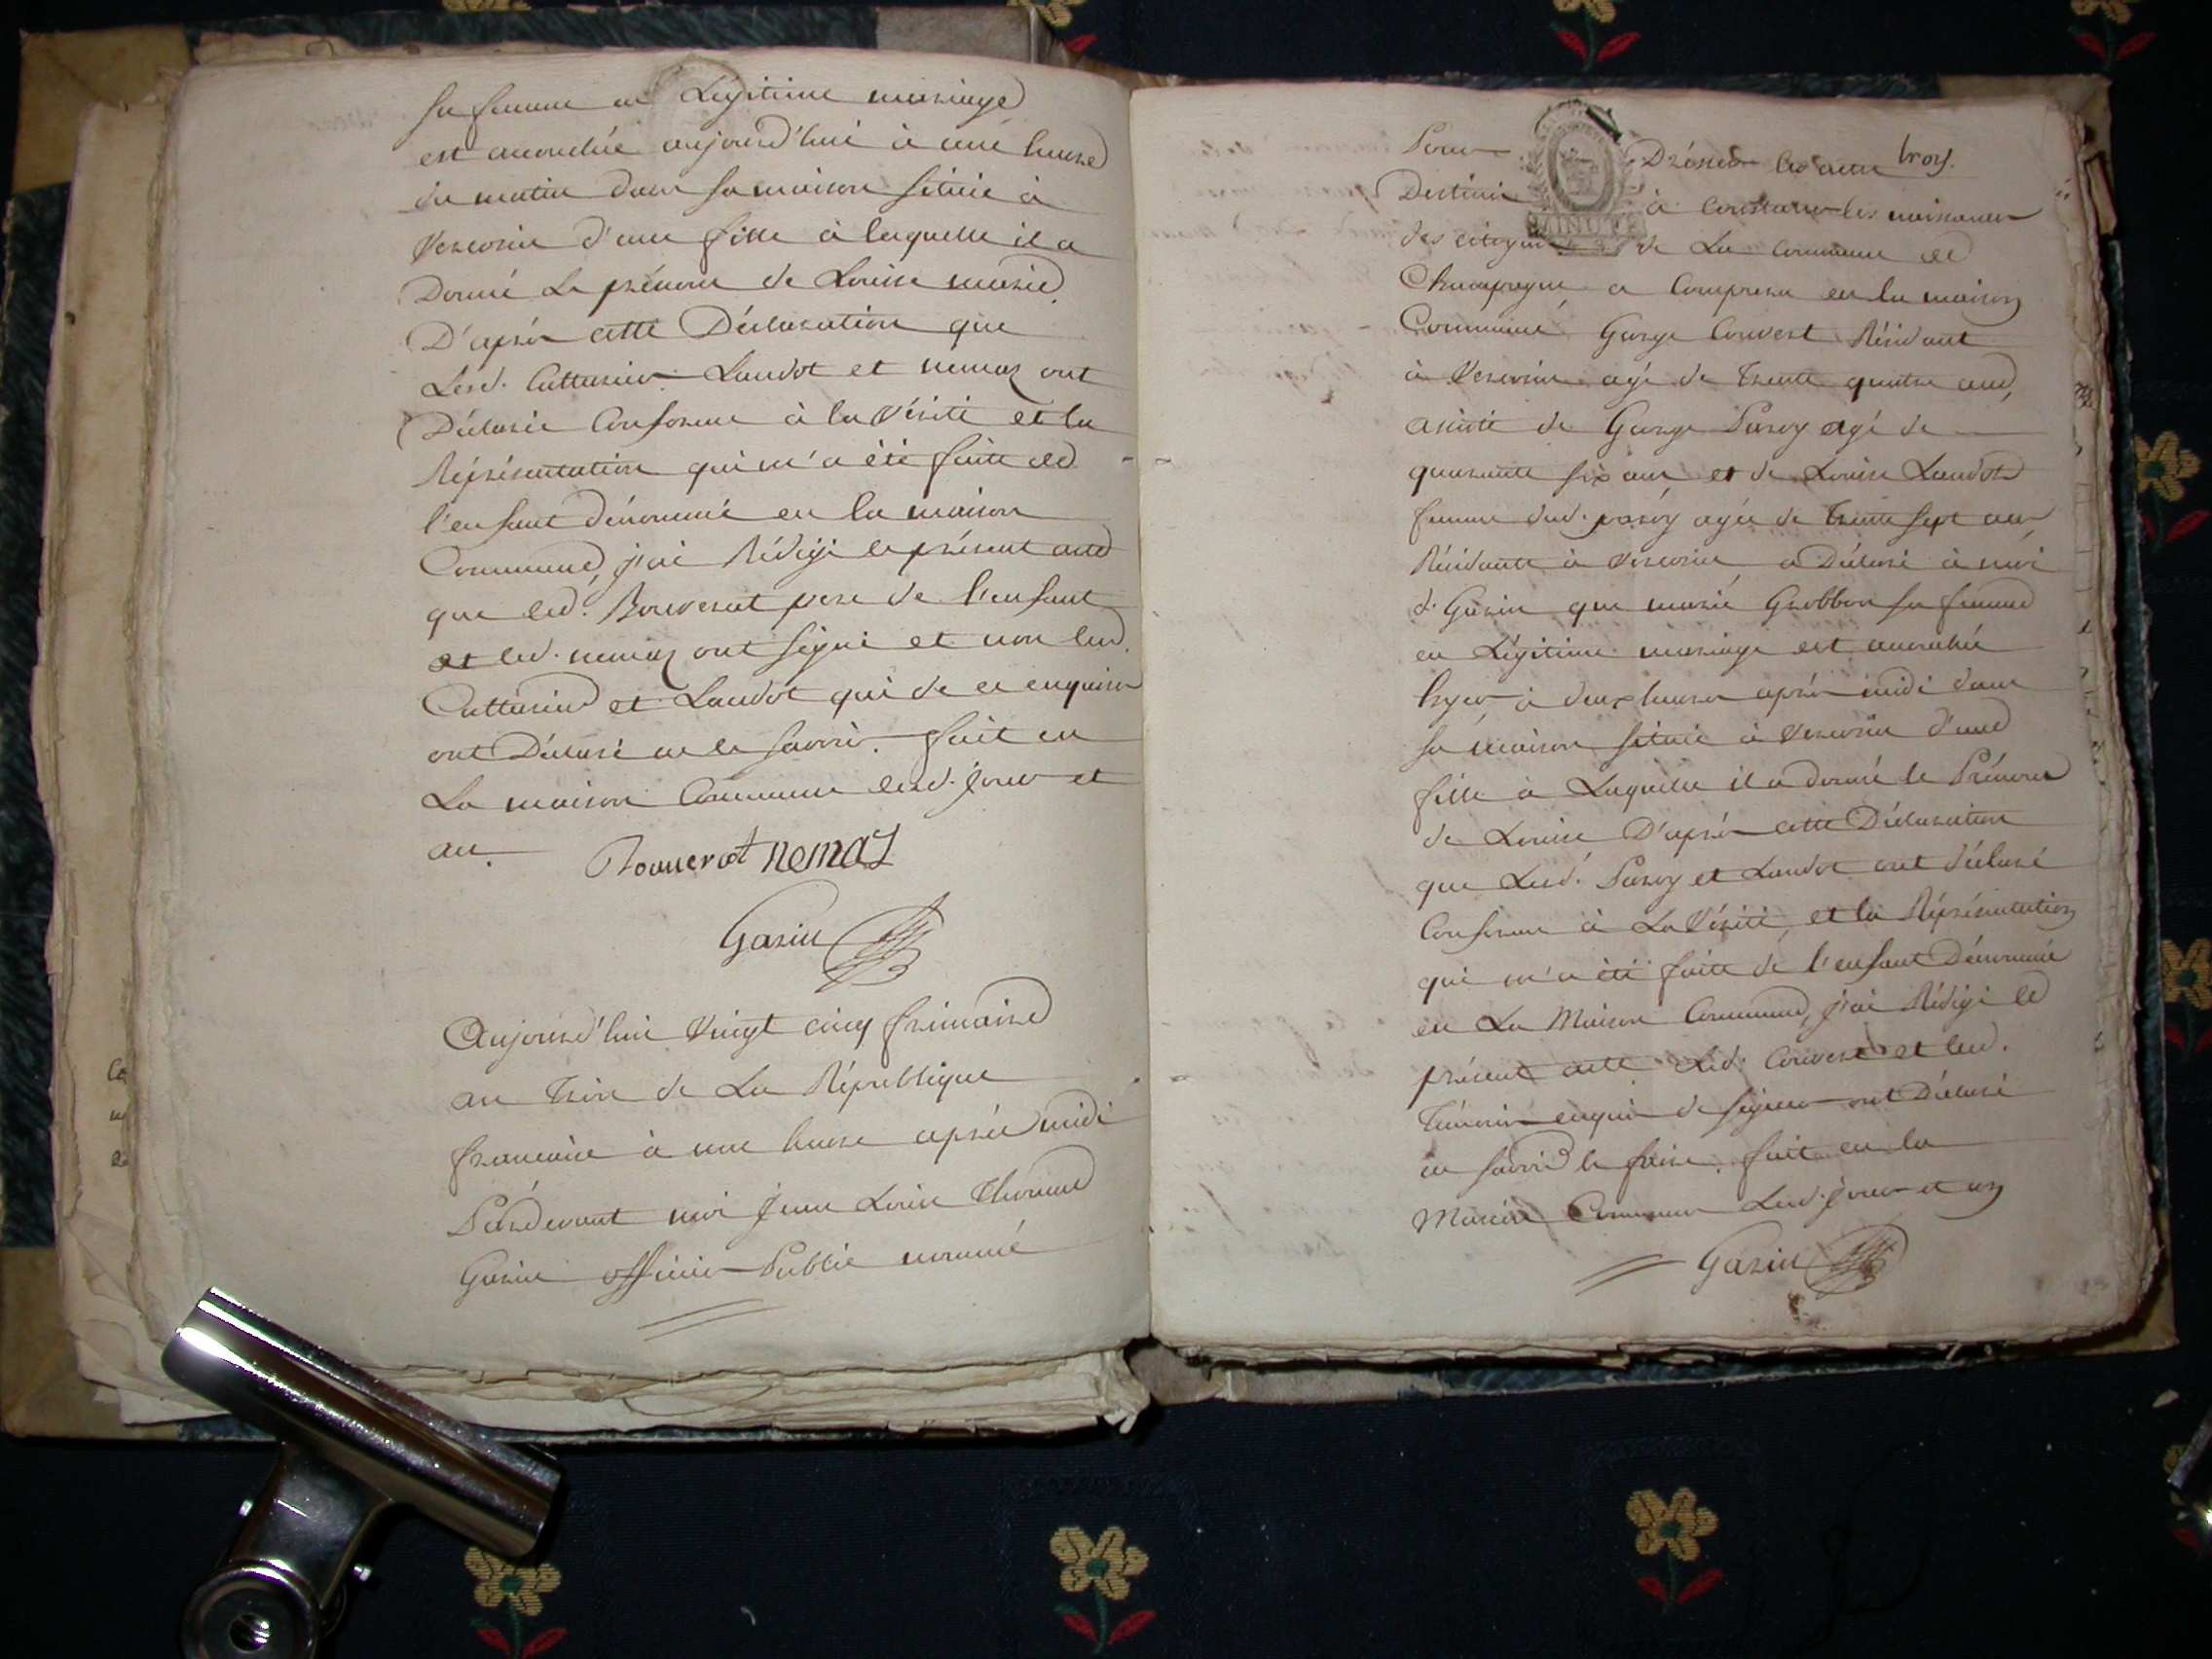 sa femme en Légitime mariage
est accouchée aujourd'hui à une heure
du matin dans sa maison située à
d'une fille à laquelle il a
Donné Le prénom de Louise marie
D'après cette Déclaration que
Lesd. Landot et nemoz ont
Déclarée Conforme à la Vérité et la
Réprésentation qui m'a été faite de
l'enfant dénommé en la maison
Commune, j'ai Rédigé le présent acte
que led. Bouverat pere de l'enfant
et led. nemoz ont signé et non led.
et Landot qui de ce enquis
ont Déclaré ne le savoir. fait en
La maison Commune lesd. jour et
an.
Bouverat nemoz
Garin
Aujourd'hui Vingt cinq frimaire
an Trois de La République
francaise à une heure après midi
Pardevant moi Jean Louis
Garin officier Public nommé
trois.
Pour Dresser les actes
Destinés à Constater les naissances
des citoyens de La Commune de
Champagne a Comparu en la maison
Commune George Convert Résidant
à agé de Trente quatre ans,
assisté de George Paroy agé de
quarante six ans et de Louise Landot
femme dud. paroy agée de trente sept ans
Résidants à a Déclaré à moi
d. Garin que marie Grobbon sa femme
en Légitime mariage est accouchée
hyer à deux heures après midi dans
sa maison située à d'une
fille à Laquelle il a donné le Prénom
de Louise D'après cette Déclaration
que Lesd. Paroy et Landot ont déclaré
Conforme à La Vérité et la Réprésentation
qui m'a été faitte de l'enfant Dénommée
en La Maison Commune, j'ai Rédigé le
présent acte Led. Convert et lesd.
Témoins enquis de signer ont Déclaré
ne savoir le faire. fait en la
Maison Commune Lesd. jour et an
Garin
MINUTE